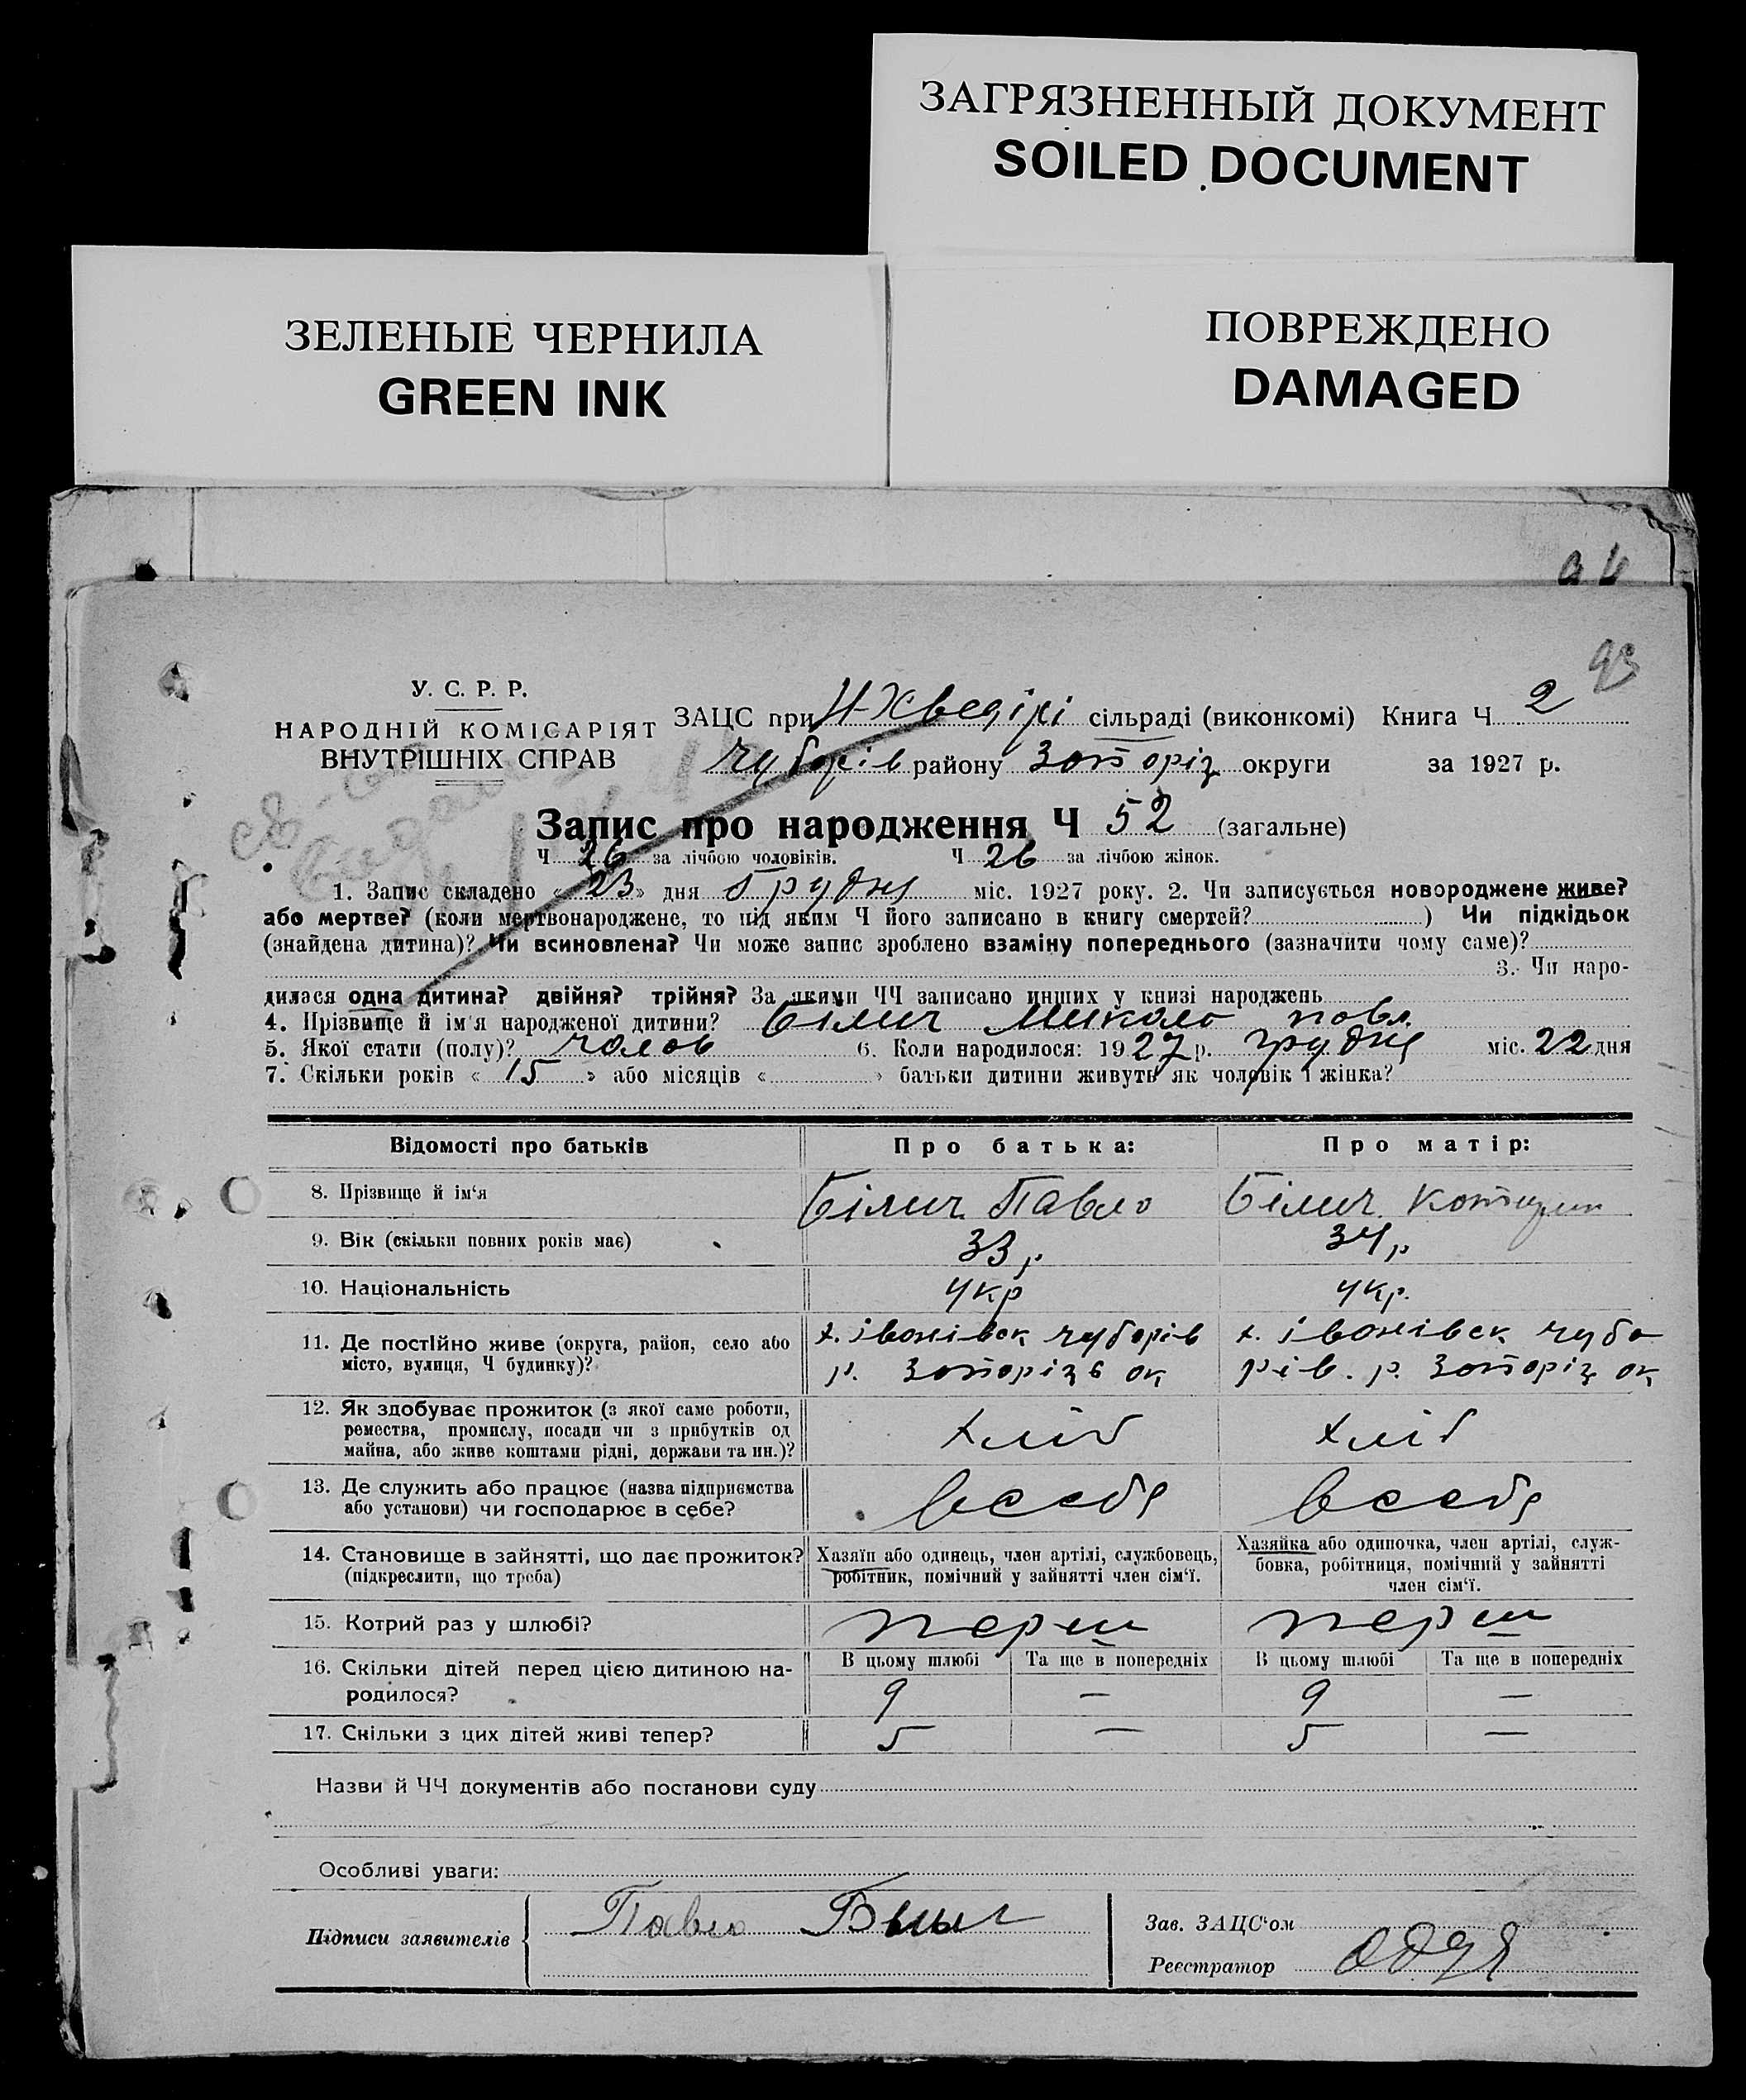 ЗАГРЯЗНЕННЫЙ ДОКУМЕНТ
SOILED DOCUMENT
ЗЕЛЕНЫЕ ЧЕРНИЛА
GREEN INK
ПОВРЕЖДЕНО
DAMAGED
93
У. С. Р. Р.
НАРОДНІЙ КОМІСАРІЯТ
ВНУТРІШНІХ СПРАВ
ЗАЦС при Н-Хведірі сільраді (виконкомі) Книга Ч 2
Чубарів району Запоріз округи за 1927 р.
Запис про народження Ч 52 (загальне)
Ч 26 за лічбою чоловіків. Ч 26 за лічбою жінок.
1. Запис складено « 23 » дня грудня міс. 1927 року. 2. Чи записується новороджене живе?
або мертве? (коли мертвонароджене, то під яким Ч його записано в книгу смертей? ) Чи підкідьок
(знайдена дитина)? Чи всиновлена? Чи може запис зроблено взаміну попереднього (зазначити чому саме)?
3. Чи наро-
дилася одна дитина? двійня? трійня? За якими ЧЧ записано инших у книзі народжень
4. Прізвище й ім'я народженої дитини? Білич Микола павл.
5. Якої стати (полу)? чолов 6. Коли народилося: 1927 р. грудня міс. 22 дня
7. Скільки років « 15 » або місяців « » батьки дитини живуть як чоловік і жінка?
Відомості про батьків Про батька: Про матір:
8. Прізвище й ім'я Білич Павло Білич
9. Вік (скільки повних років має) 33 р 34 р
10. Національність Укр Укр.
11. Де постійно живе (округа, район, село або х. івонівск чубарів х. івонівск чуба
місто, вулиця, Ч будинку)? р. Запорізь ок рів. р. Запоріз ок
12. Як здобуває прожиток (з якої саме роботи,
ремества, промислу, посади чи з прибутків од хліб хліб
майна, або живе коштами рідні, держави та ин.)?
13. Де служить або працює (назва підприємства
або установи) чи господарює в себе? всебя всебя
14. Становище в зайнятті, що дає прожиток? Хазяїн або одинець, член артілі, службовець, Хазяйка або одиночка, член артілі, служ-
(підкреслити, що треба) робітник, помічний у зайнятті член сім'ї. бовка, робітниця, помічний у зайнятті
член сім'ї.
15. Котрий раз у шлюбі? перш перш
16. Скільки дітей перед цією дитиною на- В цьому шлюбі Та ще в попередніх В цьому шлюбі Та ще в попередніх
родилося? 9 — 9 —
17. Скільки з цих дітей живі тепер? 5 — 5 —
Назви й ЧЧ документів або постанови суду
Особливі уваги:
Підписи заявителів Павло
Зав. ЗАЦС'ом
Реєстратор